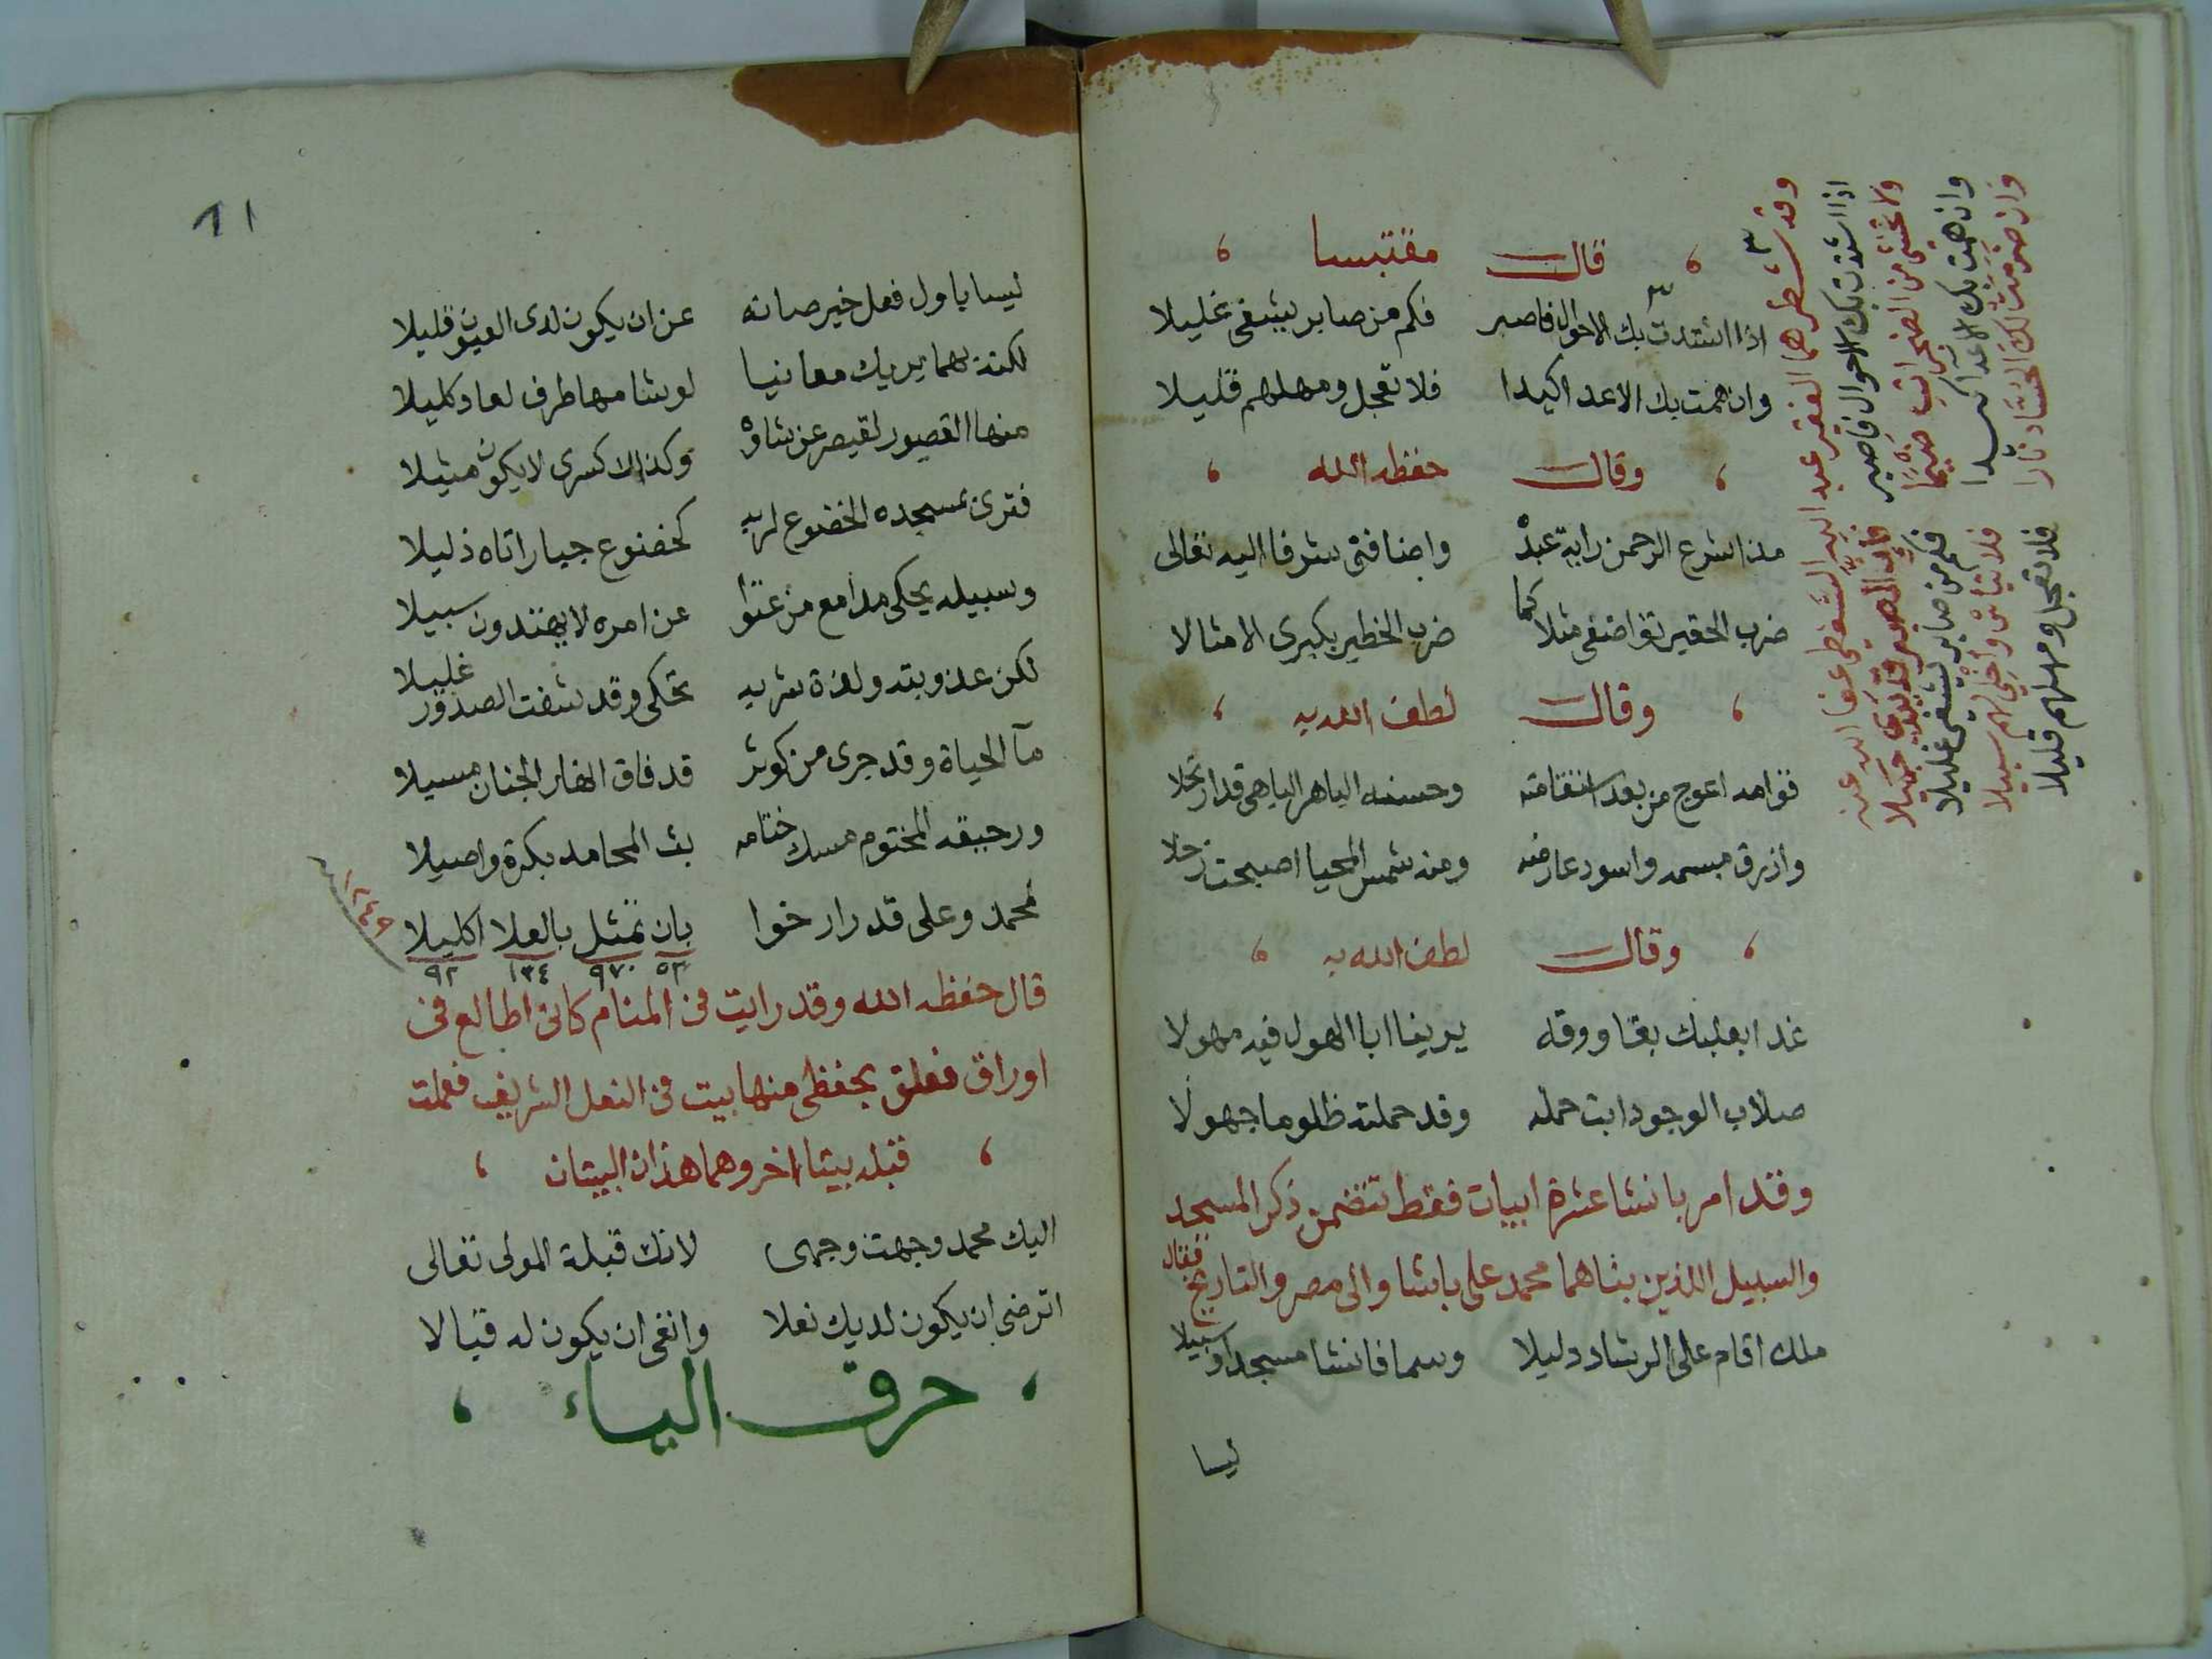 قال مقتبسا
اذا اشتدت بك الاحوال فاصبر فكم من صابر يشفى غليلا
وان همت بك الاعدا كيدا فلا تعجل ومهلهم قليلا
وقال حفظه الله
مذ اشرع الرحمن راية عبده واضافنى شرفا اليه تعالى
ضرب الحقير تواضعى مثلا كما ضرب الخطير بكبرى الامثالا
وقال لطف الله به
قوامه اعوج من بعد استقامته وحسنه الباهر الباهى قد ارتحلا
وازرق مبسمه واسود عارضه ومنه شمس المحيا اصبحت زحلا
وقال لطف الله به
غدا بعلبك بقاووقه يرينا ابا الهول فيه مهولا
صلاب الوجود ابت حمله وقد حملته ظلوما جهولا
وقد امر بانشا عشرة ابيات فقط تتضمن ذكر المسجد
والسبيل اللذين بناهما محمد على باشا والى مصر والتاريخ فقال
ملك اقام على الرشاد دليلا وسما فانشا مسجدا وسبيلا
ليسا
وقد شطرهما الفقير عبد الله السفطى عفا الله عنه
اذا اشتدت بك الاحوال فاصبر
ولا تخشى من الضجرات ضيما فكم من صابر يشفى غليلا
وان همت بك الاعدا كيدا فلا تياس واخلى لهم سبيلا
وان ضرمت لك الحساد نارا فلا تعجل ومهلهم قليلا
١١
ليسا باول فعل خير صانه عن ان يكون لدى العيون قليلا
لكنه بهما يريك معانيا لو شامها طرف لعاد كليلا
منها القصور لقيصر عن شاوه وكذالك كسرى لا يكون مثيلا
فترى بمسجده الخضوع لربه كخضوع جبار اتاه ذليلا
وسبيله يحكى مدامع من عتوا عن امره لا يهتدون سبيلا
لكن عذوبته ولذة شربه تحكى وقد شفت الصدور غليلا
مآ الحياة وقد جرى من كوثر قد فاق انهار الجنان مسيلا
ورحيقه المختوم مسك ختامه بث المحامد بكرة واصيلا
لمحمد وعلى قد ارخوا بان تمثل بالعلا اكليلا
٥٣ ٩٧٠ ١٣٤ ٩٢
١٢٤٩
قال حفظه الله وقد رايت فى المنام كانى اطالع فى
اوراق فعلق بحفظى منها بيت فى النعل الشريف فعملت
قبله بيتا اخر وهما هذان البيتان
اليك محمد وجهت وجهى لانك قبلة المولى تعالى
اترضى ان يكون لديك نعلا وانفى ان يكون له قبالا
حرف الياء